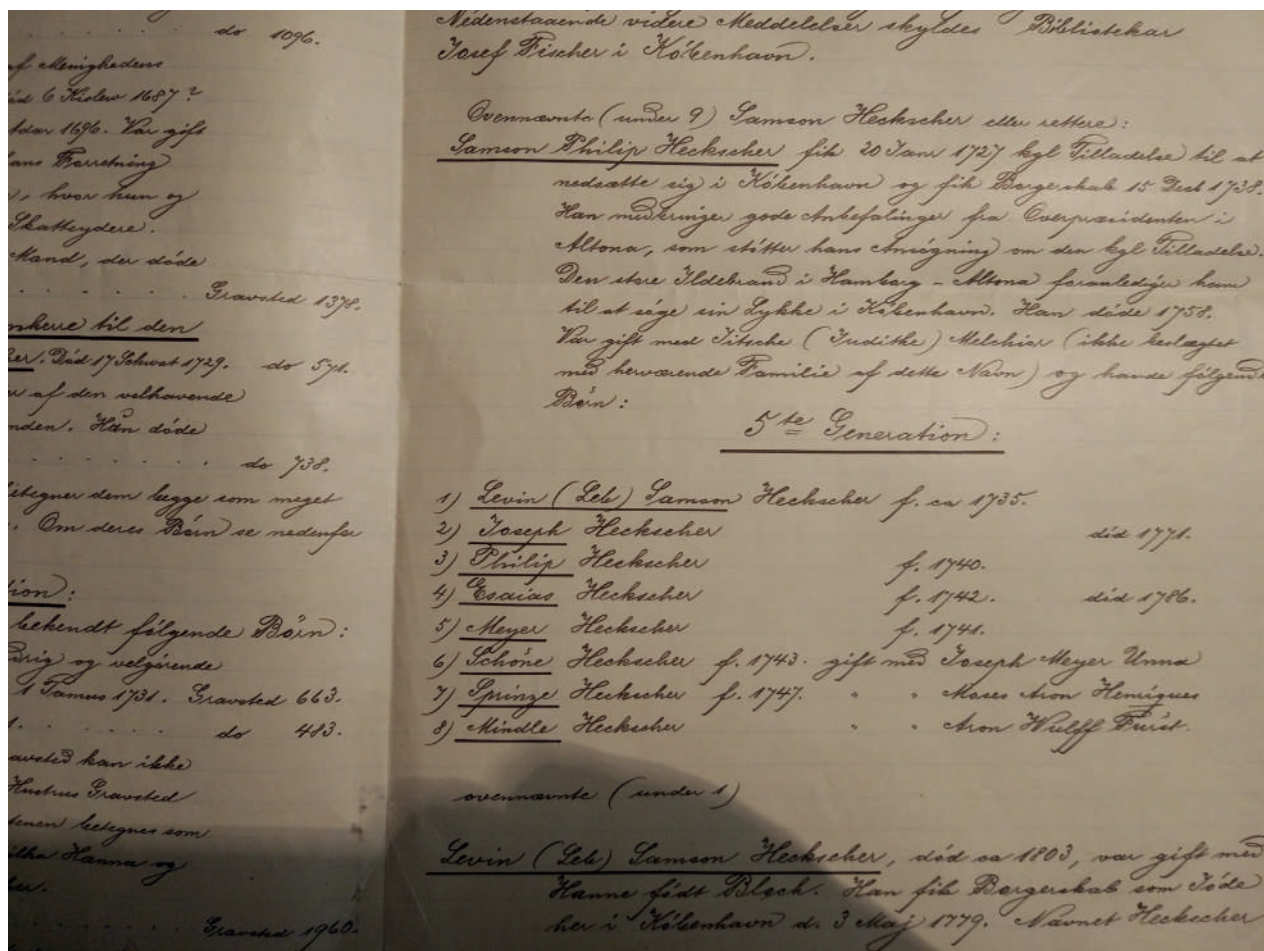 do 1096.
af Menighedens
død 6 Kislew 1687?
Adar 1696. Var gift
hans Forretning
, hvor hun og
Skatteydere.
Mand, der døde
. . . . . . Gravsted 1378.
til den
. Død 17 Schwat 1729. do 571.
af den velhavende
. Han døde
. . . . . . . . do 738.
betegner dem begge som meget
. Om deres Børn se nedenfor
ion:
bekendt følgende Børn:
og velgørende
1 Tamus 1731. Gravsted 663.
. . . . . . do 483.
Gravsted kan ikke
Hustrus Gravsted
betegnes som
Hanna og
. . . . . . Gravsted 1960.
Nedenstaaende videre Meddelelser skyldes Bibliotekar
Josef Fischer i København.
Ovennævnte (under 9) Samson Heckscher eller rettere:
Samson Philip Heckscher fik 20 Janr 1727 kgl Tilladelse til at
nedsætte sig i København og fik Borgerskab 15 Decb 1738.
Han medbringer gode Anbefalinger fra Overpræsidenten i
Altona, som støtter hans Ansøgning om den kgl Tilladelse.
Den store Ildebrand i Hamborg - Altona foranlediger ham
til at søge sin Lykke i København. Han døde 1758.
Var gift med Jitsche (Judithe) Melchior (ikke beslægtet
med herværende Familie af dette Navn) og havde følgende
Børn:
5te Generation:
1) Levin (Leb) Samson Heckscher f. ca 1735.
2) Joseph Heckscher død 1771.
3) Philip Heckscher f. 1740.
4) Esaias Heckscher f. 1742. død 1786.
5) Meyer Heckscher f. 1741.
6) Schöne Heckscher f. 1743. gift med Joseph Meyer Unna
7) Sprinze Heckscher f. 1747. " " Moses Aron Henriques
8) Mindle Heckscher " " Aron Wulff Fürst.
ovennævnte (under 1)
Levin (Leb) Samson Heckscher, død ca 1803, var gift med
Hanne født Bloch. Han fik Borgerskab som Jøde
her i København d. 3 Maj 1779. Navnet Heckscher